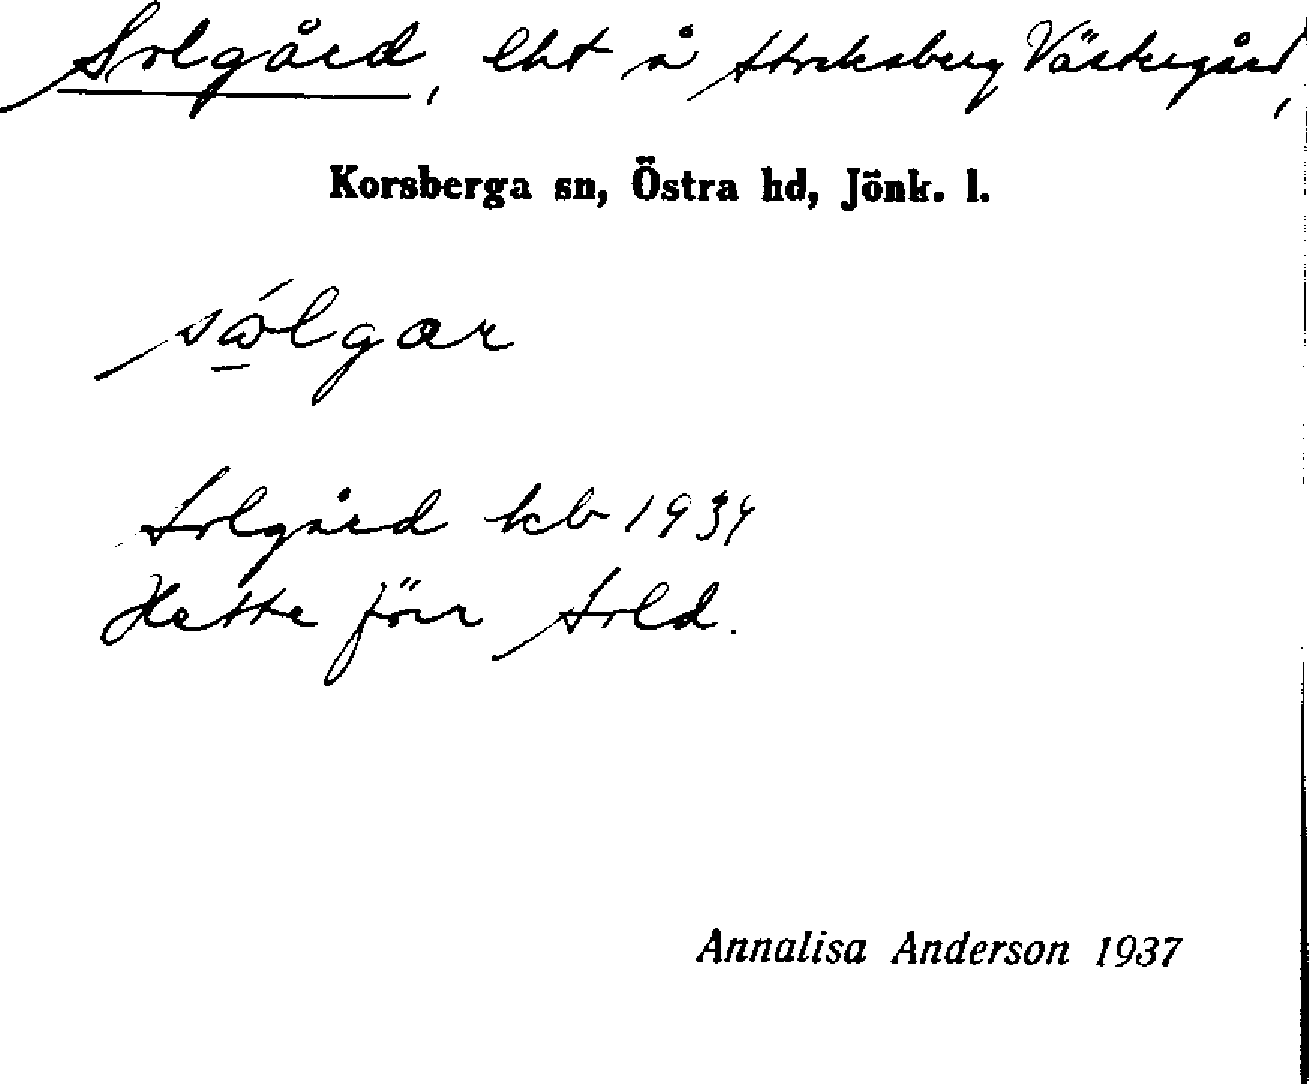 Solgård, lht å Stocksberg Västergård,
Korsberga sn, Östra hd, Jönk. l.
Solgård kb 1934
Hette förr Sold.
Annalisa Anderson 1937